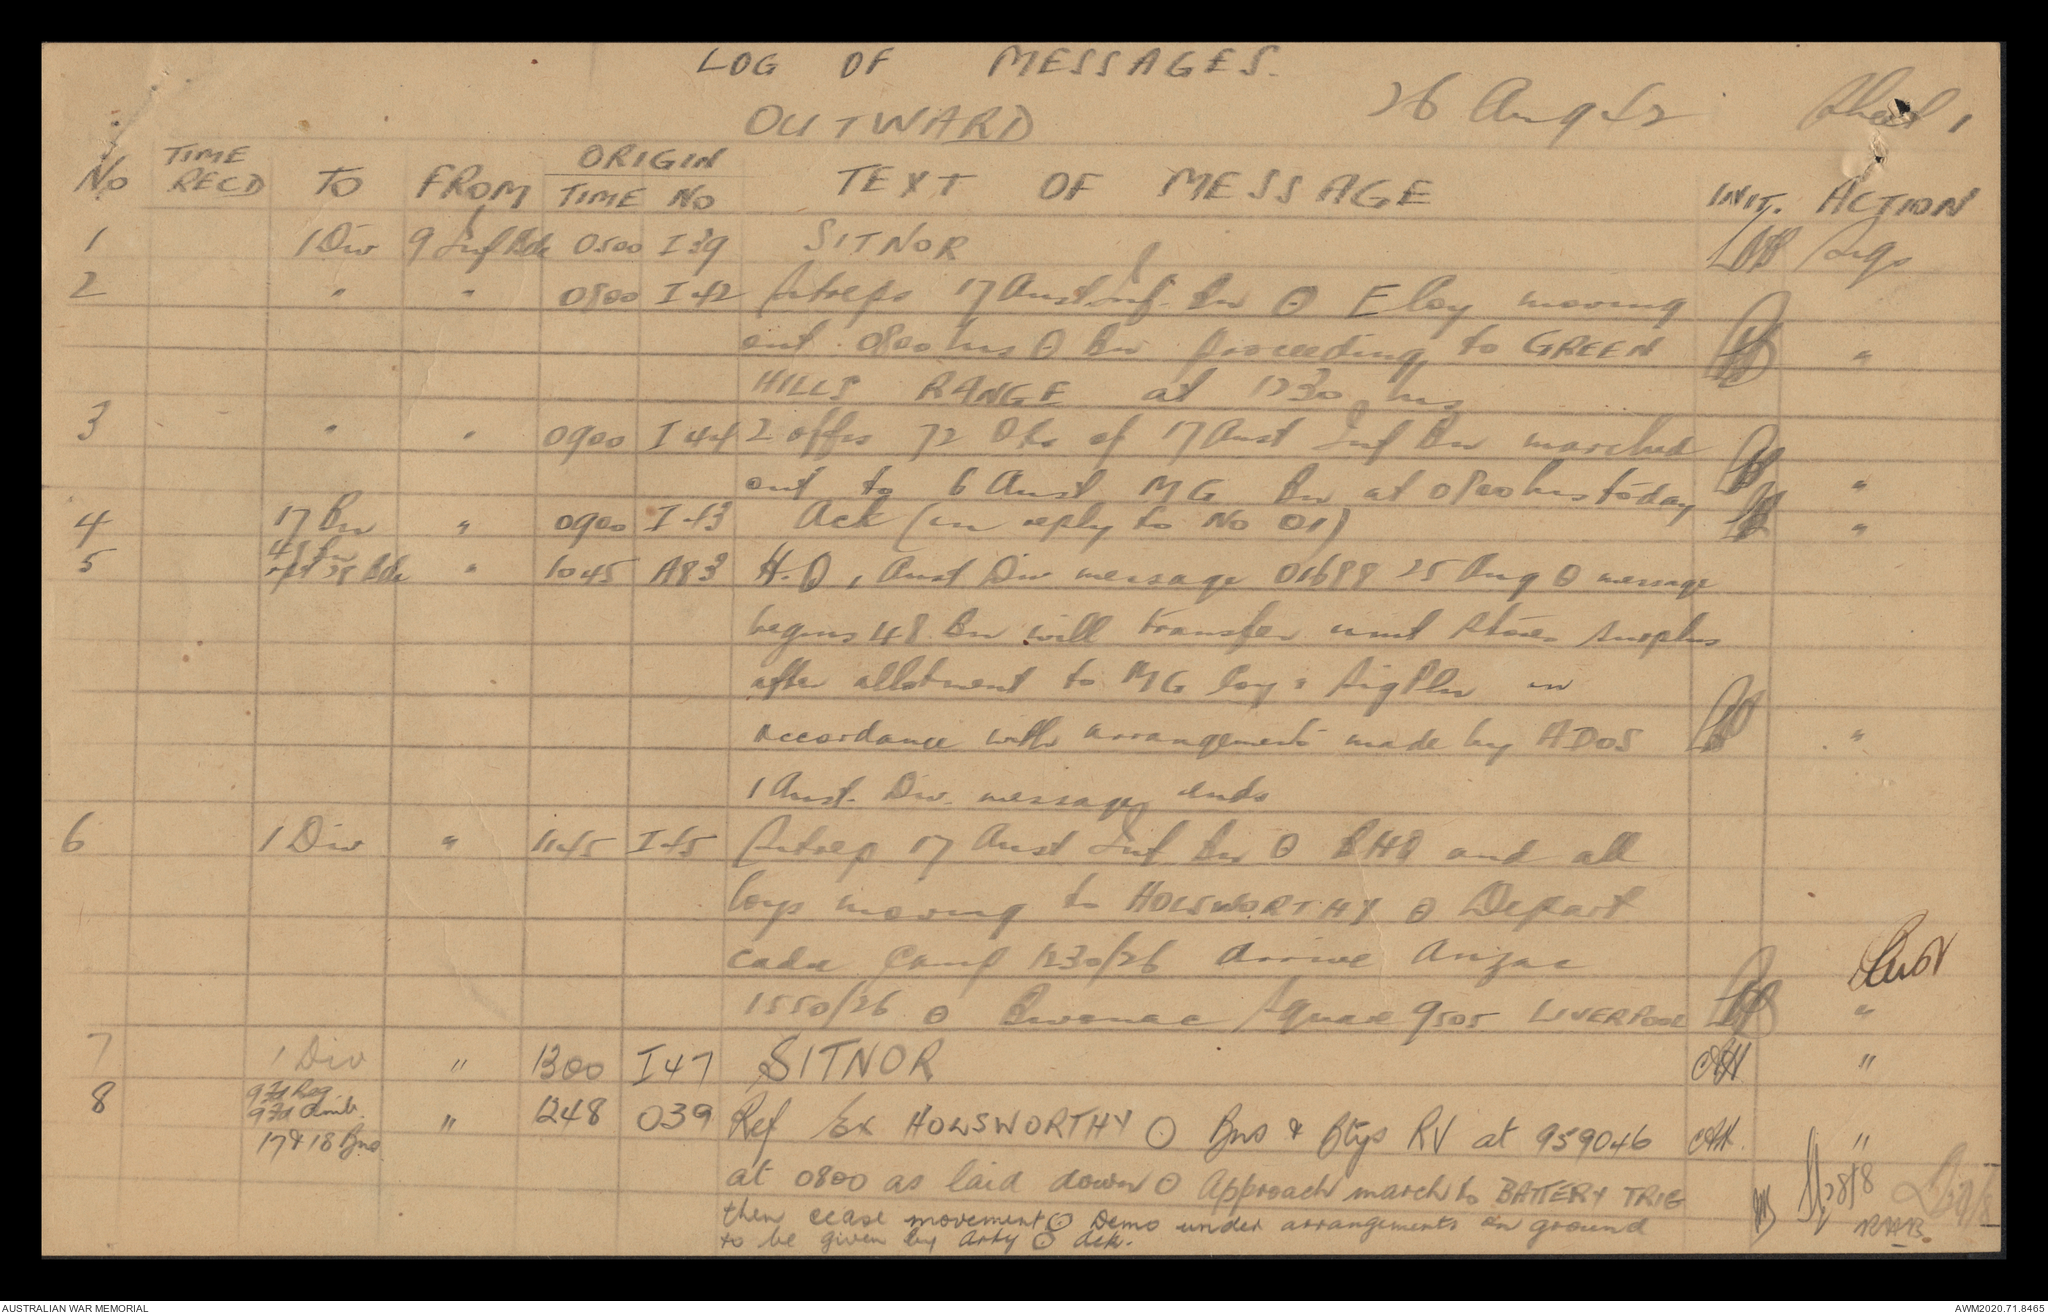 LOG OF MESSAGES.
OUTWARD 26 Aug 42 Sheet 1
No TIME RECD TO FROM ORIGIN TIME NO TEXT OF MESSAGE INIT. ACTION
1 1 Div 9 Inf Bde 0500 I 39 SITNOR Sigs
2 " " 0800 I 42 Sitreps 17 Aust Inf. Bn O E Coy moving
out 0800 hrs O Bn proceeding to GREEN "
HILLS RANGE at 1230 hrs
3 " " 0900 I 44 2 offrs 72 ORs of 17 Aust Inf Bn marched
out to 6 Aust MG Bn at 0800 hrs today "
4 17 Bn " 0900 I 43 Ack (in reply to No 01) "
5 48 Bn " 1045 A83 H.Q 1 Aust Div message 01688 25 Aug O message
rptd 28 Bde
begins 48 Bn will transfer unit stores surplus
after allotment to MG Coy & Sig Pln in
accordance with arrangements made by ADOS "
1 Aust. Div. message ends
6 1 Div " 1145 I 45 Sitrep 17 Aust Inf Bn O BHQ and all
Coys moving to HOLSWORTHY O Depart
camp 1230/26 Arrive Anzac
1550/26 O Bivouac Square 9505 LIVERPOOL "
7 1 Div " 1300 I 47 SITNOR "
8 9 Fd Reg " 1248 O39 Ref Ex HOLSWORTHY O Bns & Btys RV at 959046 "
9 Fd Amb.
17 & 18 Bns
at 0800 as laid down O Approach march to BATTERY TRIG
then cease movement O Demo under arrangements on ground
to be given by Arty O Ack.
28/8
AUSTRALIAN WAR MEMORIAL AWM2020.71.8465